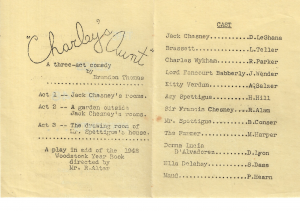 "Charley's Aunt"
A three-act comedy
by
Brandon Thomas
Act 1 -- Jack Chesney's rooms.
Act 2 -- A garden outside
Jack Chesney's rooms.
Act 3 -- The drawing room of
Mr. Spettigue's house.
A play in aid of the 1948
Woodstock Year Book
directed by
Mr. S. Alter
CAST
Jack Chesney
Brassett L. Teller
Charley Wykham R. Parker
Lord Fancourt Babberly J.
Kitty Verdun
Amy Spettigue H. Hill
Sir Francis Chesney A. Alam
Mr. Spettigue D. Conser
The Farmer M. Harper
Donna Lucia
D'Alvadorez D. Lyon
Ella Delahay S. Dass
Maud P. Hearn